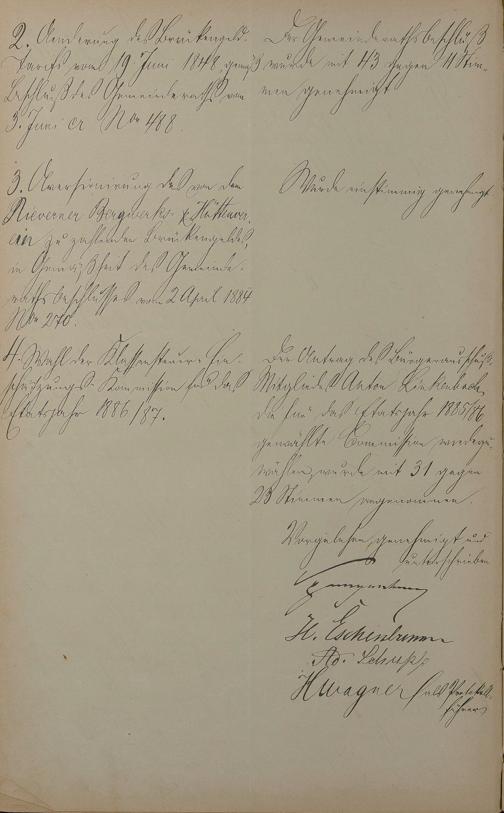 2. Aenderung des Brückengeld-
Tarifs vom 19 Juni 1848, gemäß
Beschluß des Gemeinderaths vom
3. Juni cr Nor 488.
Der Gemeinderathsbeschluß
wurde mit 43 gegen 11 Stim-
men genehmigt
3. Aversionirung des von dem
Rieverner Bergwerks- & Hüttenver-
ein zu zahlenden Brückengeldes,
in Gemäßheit des Gemeinde-
rathsbeschlusses vom 2 April 1884
Nor 270.
Wurde einstimmig genehmigt.
4. Wahl der Klassensteuer-Ein-
schätzungs-Kommission für das
Etatsjahr 1886/87.
Der Antrag des Bürgerausschuß-
Mitgliedes Anton Linkenbach,
die für das Etatsjahr 1885/86
gewählte Commission wiederzu-
wählen, wurde mit 31 gegen
23 Stimmen angenommen.
Vorgelesen, genehmigt und
unterschrieben
H. Eschenbrenner
Ad. Schupp
H Wagner als Protokoll-
führer